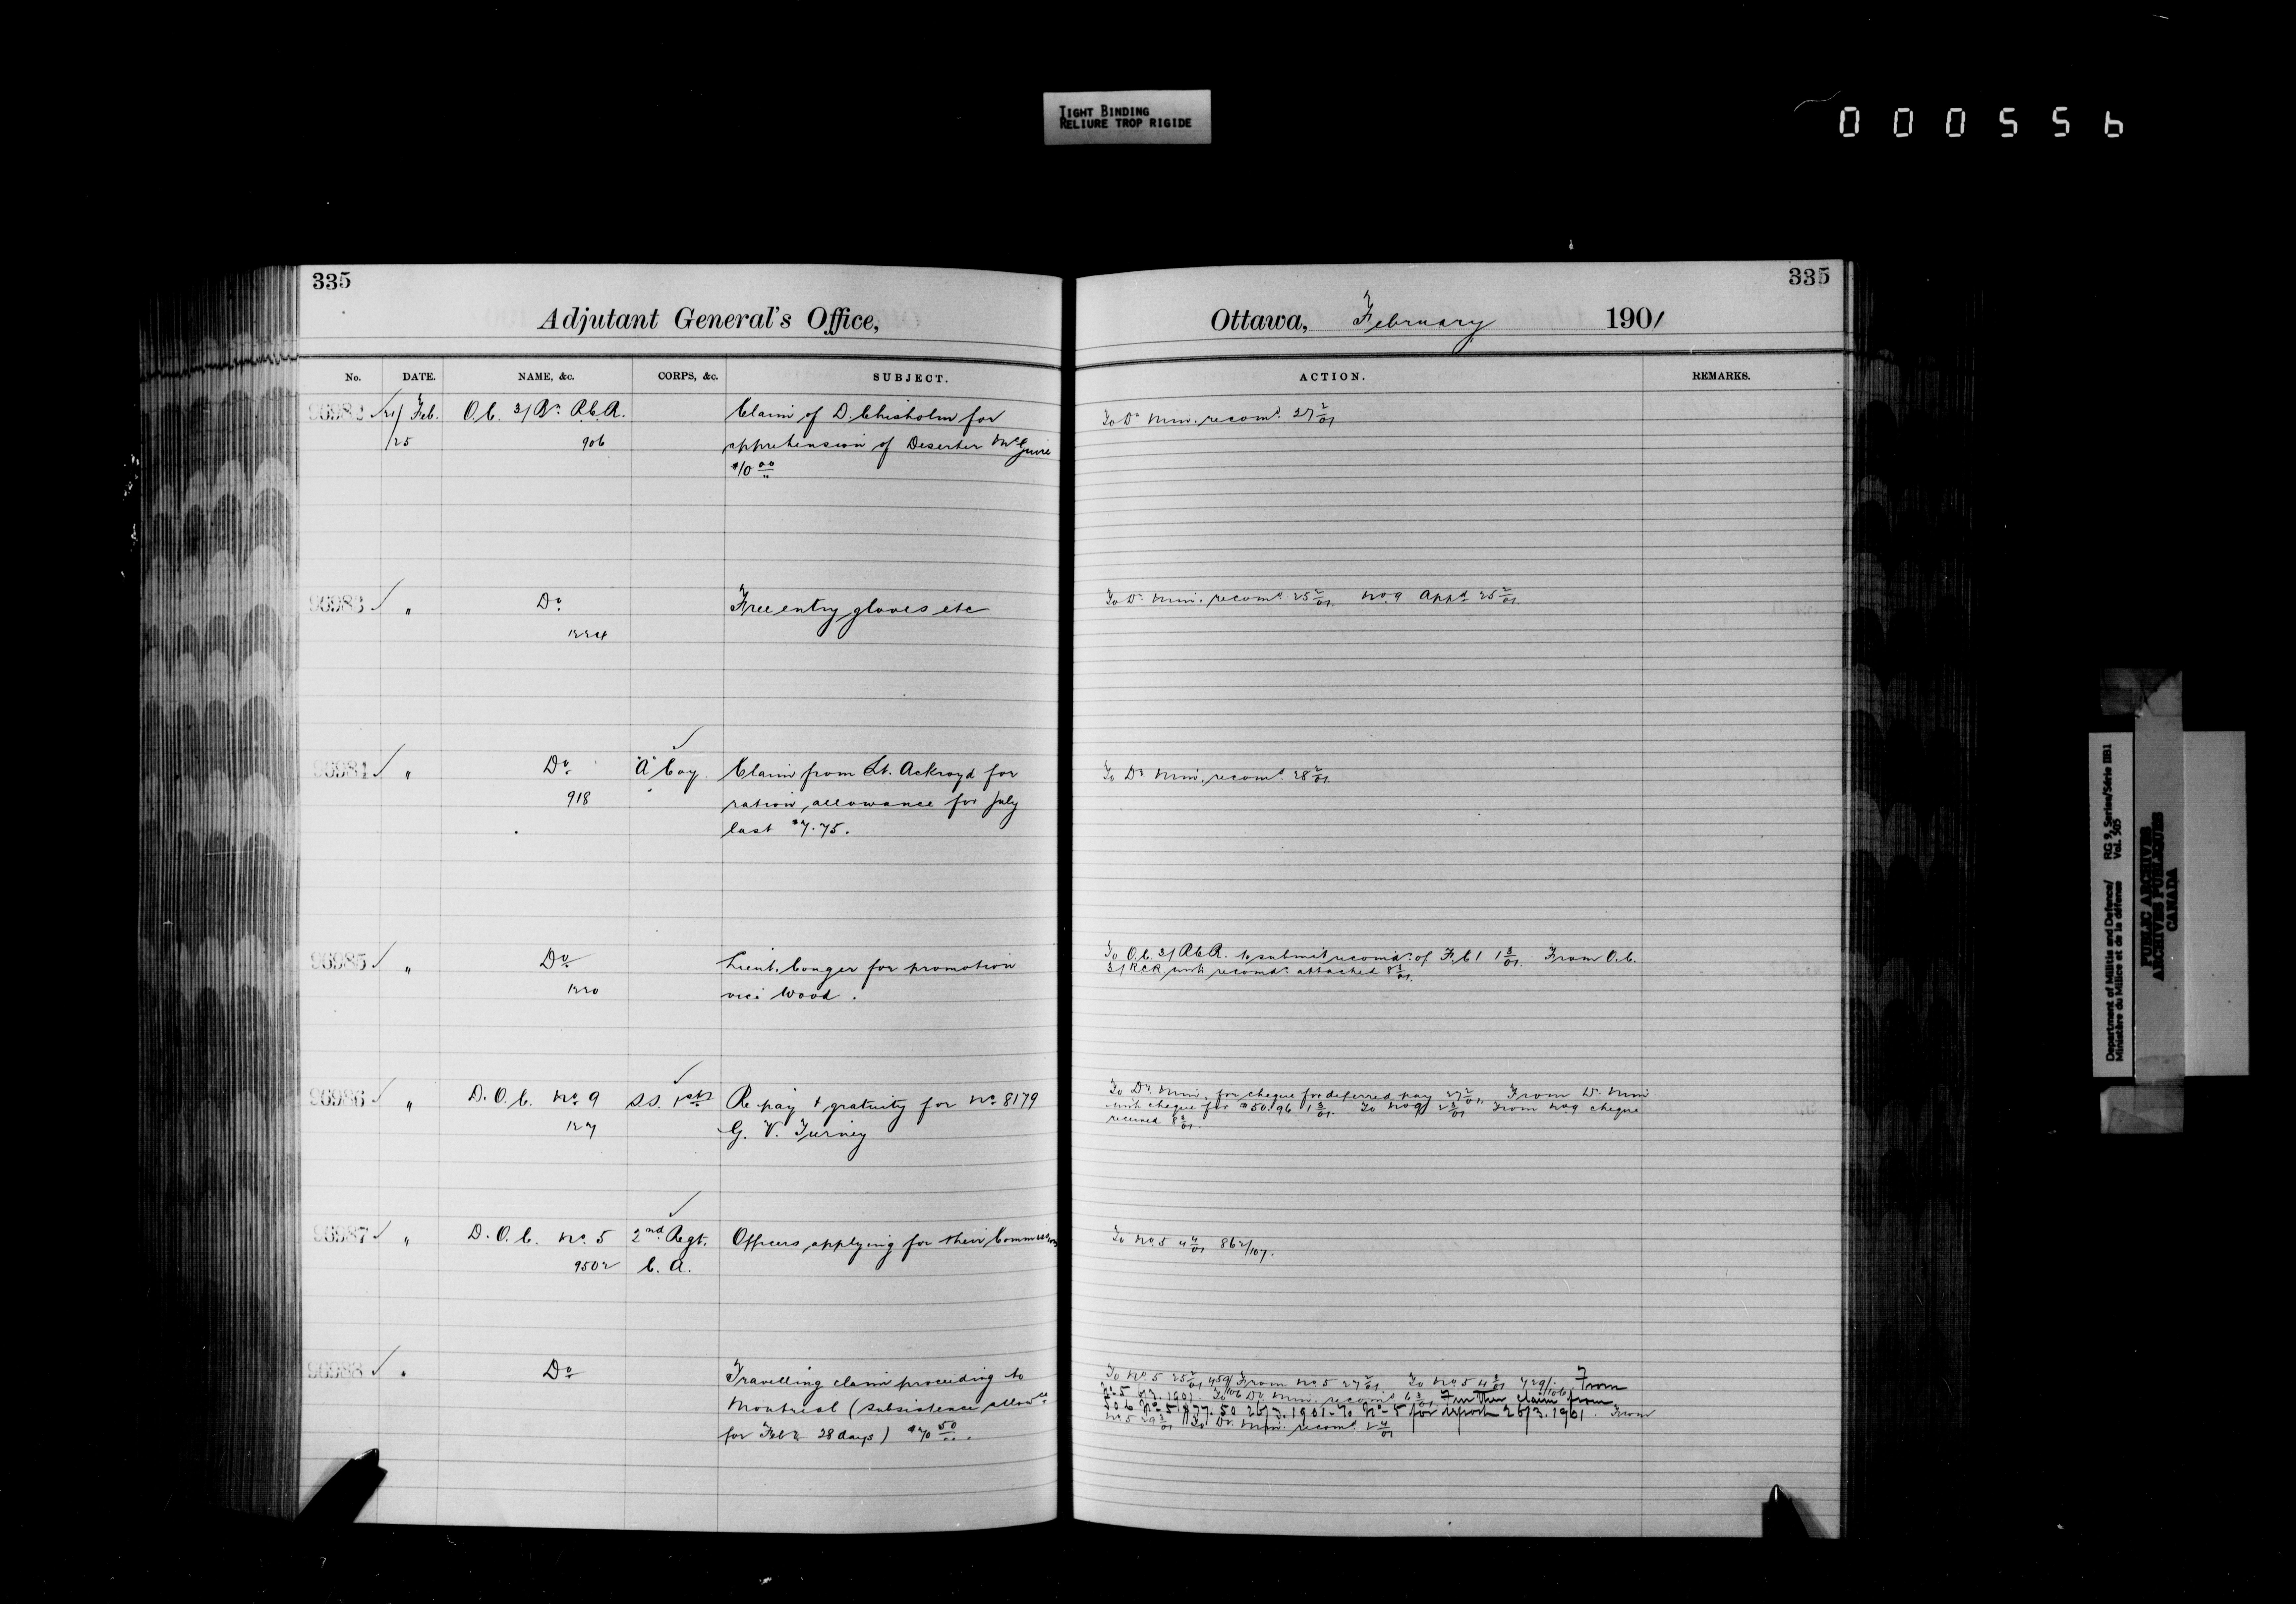 TIGHT BINDING
RELIURE TROP RIGIDE
000556
335
335
Adjutant General's Office,
Ottawa, February 1901
No. DATE. NAME, &c. CORPS, &c. SUBJECT.
ACTION. REMARKS.
96982 21/ Feb. O.C. 3/Bn R.C.R. Claim of D. Chisholm for
/25 906 apprehension of Deserter McGuire
$10 00
To Dr Min. recomd. 27 2/01
96983 " Do Free entry gloves etc
1224
To Dr Min. recomd 25 2/01. No. 9 Appd 25 2/01.
96984 " Do "A" Coy. Claim from Lt. Ackroyd for
918 ration allowance for July
last $7.75.
To Dr Min. recomd. 28 2/01
96985 " Do Lieut. Conger for promotion
1220 vice Wood.
To O.C. 3/R.C.R. to submit recomdn. of 1 3/01. From O.C.
3/RCR with recomdn. attached 8 3/01.
96986 " D.O.C. No. 9 S.S. Re pay & gratuity for No. 8179
127 G. V. Turney
To Dr Min. for cheque for deferred pay 27 2/01. From D. Min
with cheque for $50.96 1 3/01. To No 9 2 3/01 From No 9 cheque
received 8 3/01.
96987 " D.O.C. No. 5 2nd Regt. Officers applying for their Commissions
9502 C.A.
To No 5 4 4/01 862/107.
96988 " Do Travelling claim proceeding to
Montreal (subsistence allowce
for Feby 28 days) $70 50
To No 5 25 2/01 459/ From No 5 27 2/01 To No 5 4 3/01 429/. From
No 5 1901. To Dr. Min. recomd. 6 3/01 Further claim from
No. 5 $77.50 26/3.1901. To No. 5 for report 26/3.1901. From
No 5 29 3/01 To Dr. Min. recomd. 2 4/01
Department of Militia and Defence/
Ministère du Milice et de la défense
RG 9, Series/Série IIB1
Vol. 505
PUBLIC ARCHIVES
ARCHIVES PUBLIQUES
CANADA